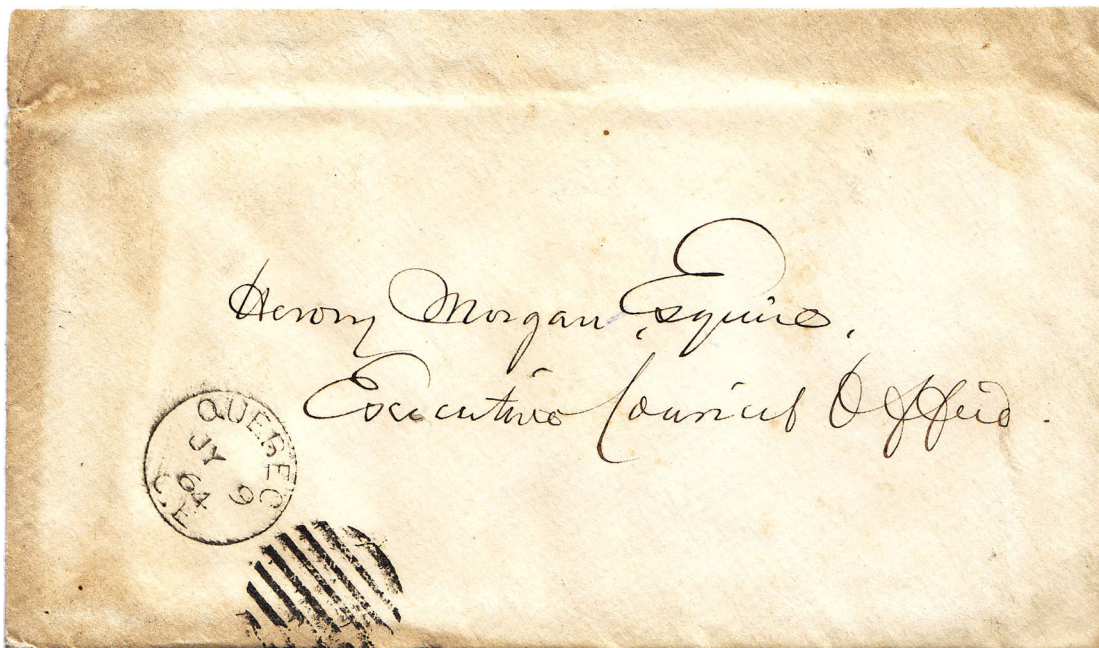 Henry Morgan Esquire,
Executive Council Office.
QUEBEC
JY 9
64
C.E